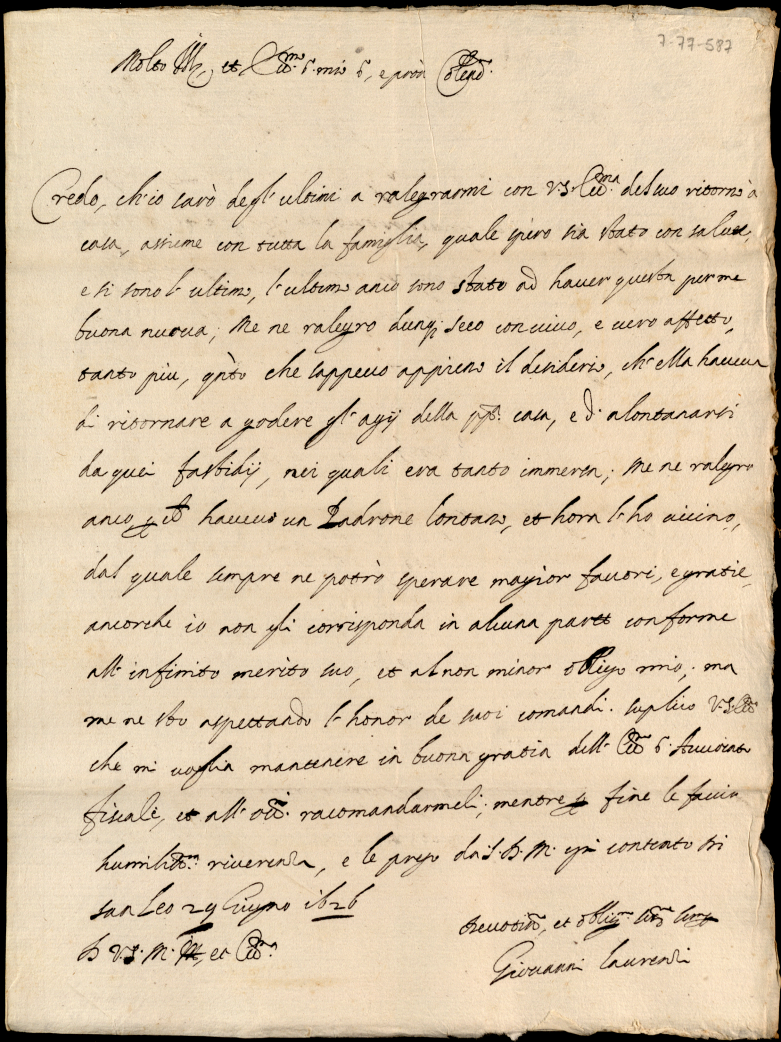 7-77-587
Molto Ill. et Ecc.mo S. mio S. e pron Colend.
Credo, ch'io sarò degl'ultimi a ralegrarmi con V.S. Ecc.ma del suo ritorno à
casa, assieme con tutta la famiglia, quale spero sia stato con salute,
e si sono l'ultimo, l'ultimo anco sono stato ad haver questa per me
buona nuova; Me ne ralegro dunq; seco con vivo, e vero affetto,
tanto più, q̃nto che sappevo appieno il desiderio, ch'ella haveva
di ritornare a godere gl'agij della pp.a casa, e d'alontanarsi
da quei fastidij, nei quali era tanto immersa; Me ne ralegro
anco havevo un Padrone lontano, et hora l'ho vicino,
dal quale sempre ne potrò sperare magior favori, e gratie,
ancorche io non gli corrisponda in alcuna parte conforme
all'infinito merito suo, et al non minor obligo mio; ma
me ne sto aspettando l'honor de suoi comandi. suplico V.S. Ecc.
che mi voglia mantenere in buona gratia dell'Ecc. S. Avvocato
fiscale, et all' racomandarmeli; mentre p fine le faccio
humiliss.ma riverenza, e le prego da S.D.M. ogni contento Di
san Leo 29 Giugno 1626
D V.S. M. Ill. et Ecc.
Devotiss.o, et oblig.mo
Giovanni Laurenzi